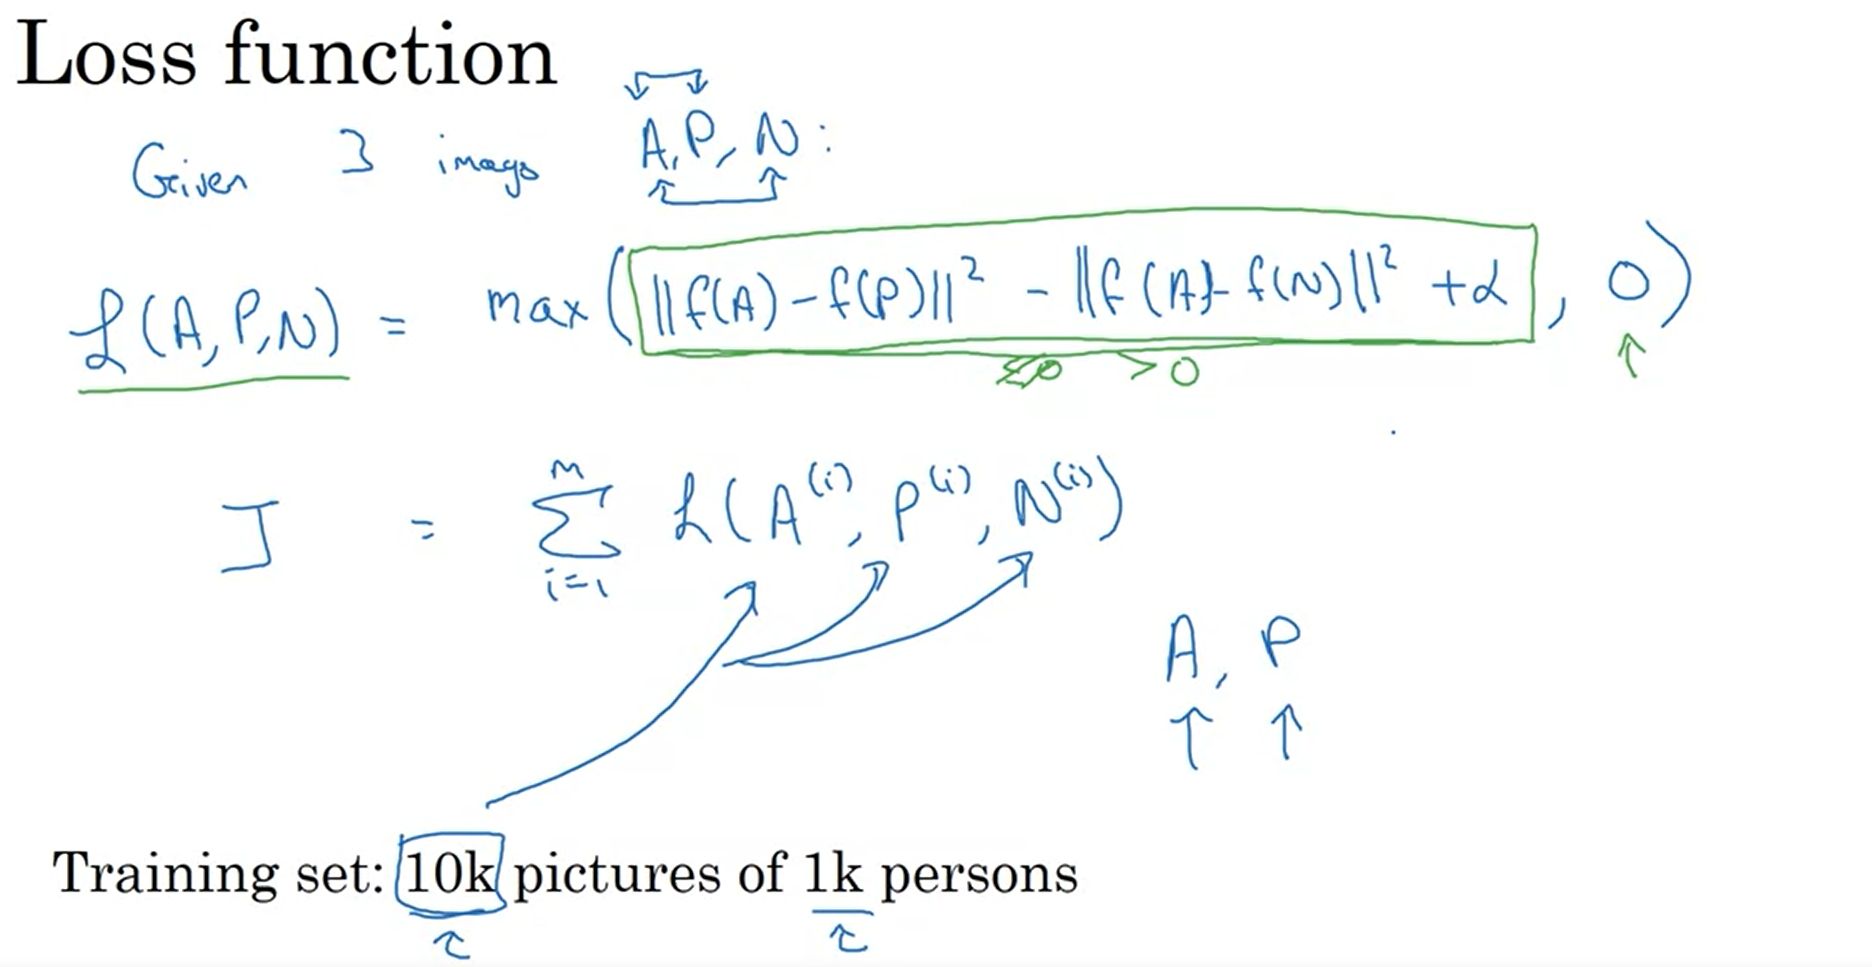 Loss function
Given 3 images A, P, N:
ℒ(A, P, N) = max(‖f(A) - f(P)‖² - ‖f(A) - f(N)‖² + α, 0)
≤0 >0
J = Σ_{i=1}^{M} ℒ(A^{(i)}, P^{(i)}, N^{(i)})
A, P
Training set: 10k pictures of 1k persons